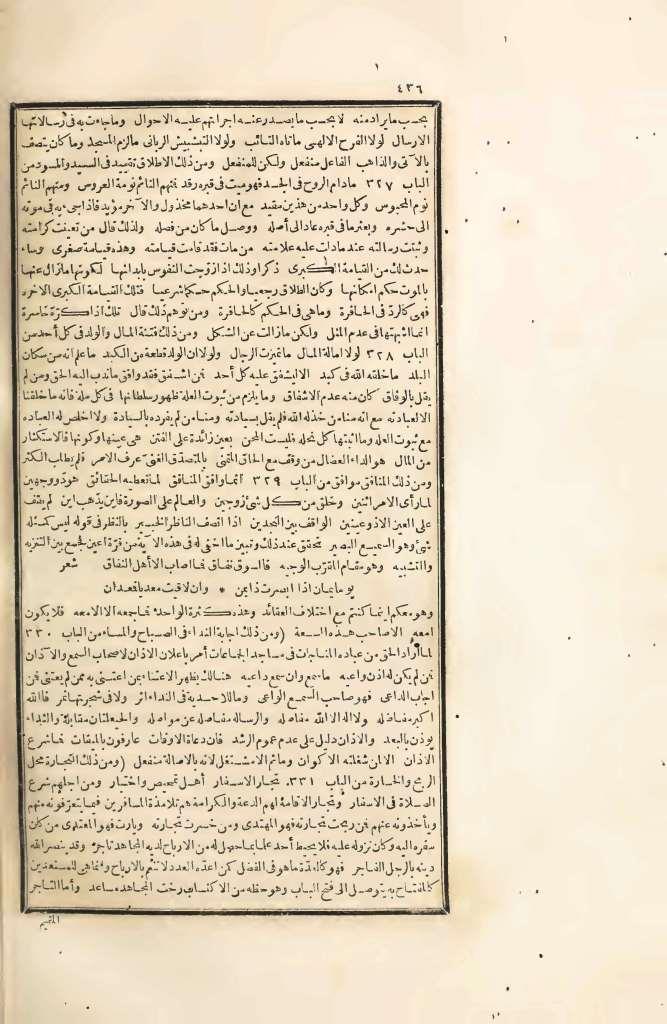 ٤٣٦
بحسب ما يراد منه لا بحسب ما يصدر عنه اجراتهم عليه الاحوال وما جاءت به فى رسالاتها
الارسال لولا الفرح الالهى ما تاه التائب ولولا التبشيش الربانى ما لزم المسجد وما كان يتصف
بالآتى والذاهب الفاعل منفعل ولكن للمنفعل ومن ذلك الاطلاق تقييد فى السيد والمسود من
الباب ٣٢٧ مادام الروح فى الجسد فهو ميت فى قبره رقد فمنهم النائم نومة العروس ومنهم النائم
نوم المحبوس وكل واحد من هذين مقيد مع ان احدهما مخذول والآخر مؤيد فاذا جىء به فى موته
الى حشره وبعثر ما فى قبره عاد الى أصله ووصل ما كان من فصله ولذلك قال من تعينت كرامته
وثبتت رسالته عند ما دلت عليه علامته من مات فقد قامت قيامته وهذه قيامة صغرى وساء
حدث لك من القيامة الكبرى ذكرا وذلك اذا زوجت النفوس بابدانها لكونها ما زال عنها
بالموت حكم امكانها وكان الطلاق رجعيا والحكم حكما شرعيا فتلك القيامة الكبرى الآخره
فهى كالردة فى الحافرة وما هى فى الحكم كالحافرة ومن توهم ذلك قال تلك اذا كرة خاسرة
انما اشبهتها فى عدم المثل ولكن ما زالت عن الشكل ومن ذلك فتنة المال والولد فى كل أحد من
الباب ٣٢٨ لولا امالة المال ما تميزت الرجال ولولا ان الولد قطعة من الكبد ما علم انه من سكان
البلد ما خلقنه الله فى كبد الا ليشفق عليه كل أحد فمن اشفق فقد وافق ما ندب اليه الحق ومن لم
يقل بالوفاق كان منه عدم الاشفاق وما يلزم من ثبوت العلة ظهور سلطانها فى كل ملة فانه ما خلقنا
الا لعبادته مع انه منا من خذله الله فلم يقل بسيادته ومنا من لم يفرده بالسيادة ولا أخلص له العباده
مع ثبوت العله وما اثبتها كل نحله فليست المحن بعين زائدة على الفتن هى عينها وكونها فالاستكثار
من المال هو الداء العضال من وقف مع الحاق المتمنى بالمتصدق الغنى عرف الامر فلم يطلب الكثر
ومن ذلك المنافق موافق من الباب ٣٢٩ انما وافق المنافق لما تعطيه الحقائق هو ذو وجهين
لما رأى الامر اثنين وخلق من كل شئ زوجين والعالم على الصورة فاين يذهب اين لم يقف
على العين الا ذو عينين الواقف بين النجدين اذا اتصف الناظر الخبير بالنظر فى قوله ليس كمثله
شئ وهو السميع البصير تحقق عند ذلك وتبين ما اخفى له فى هذه الآية من قرة اعين فجمع بين التنزيه
والتشبيه وهو مقام المقرب الوجيه فالسوق نفاق فما صاب الا أهل النفاق شعر
يوما يمان اذا ابصرت ذا يمن * وان لاقيت معديا فعدنان
وهو معكم اينما كنتم مع اختلاف العقائد وهذه كثرة الواحد فما جمعه الا الامعه فلا يكون
امعه الا صاحب هذه السعة (ومن ذلك اجابة النداء فى الصباح والمساء من الباب ٣٣٠
لما أراد الحق من عباده المناجات فى مساجد الجماعات أمر باعلان الاذان لاصحاب السمع والآذان
فمن لم يكن له اذن واعيه ما سمع وان سمع داعيه هنالك يظهر الاعتناء بمن اعتنى به ممن لم يعتنى فمن
اجاب الداعى فهو صاحب السميع الواعى وما للاحدية فى النداء اثر ولا فى شجرتها ثمر فالله
اكبر مفاضله ولا اله الا الله مفاصله والرساله مفاصله عن مواصله والحيعلتان مقابلة والنداء
يؤذن بالبعد والاذان دليل على عدم عموم الرشد فان دعاة الاوقات عارفون بالميقات فما شرع
الاذان الا لمن شغلته الاكوان وما ثم الا مشتغل لانه بالاصالة منفعل (ومن ذلك التجارة محل
الربح والخسارة من الباب ٣٣١ تجار الاسفار أهل تمحيص واختبار ومن اجلهم شرع
الصلاة فى الاسفار وتجار الاقامة لهم الدعة والكرامة هم تلامذة المسافرين فيما يتعرفونه منهم
ويأخذونه عنهم فمن ربحت تجارته فهو المهتدى ومن خسرت تجارته وبارت فهو المعتدى من كان
سفره اليه وكان نزوله عليه فلا يحيط أحد علما بما حصل له من الارباح لديه المجاهد تاجر وقد ينصر الله
دينه بالرجل الفاجر فهو كالعدة ما هو فى الفضل كمن اعده العدد لا تنعم بالارباح وانما هى للمستعدين
كالمفتاح به يتوصل الى فتح الباب وهو حظه من الاكتساب رخت المجاهد ساعد وأما التاجر
المقيم